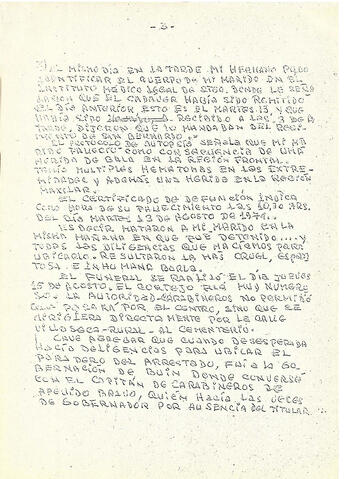 - 3 -
EL MISMO DIA EN LA TARDE MI HERMANO PUDO
IDENTIFICAR EL CUERPO DE MI MARIDO EN EL
INSTITUTO MÉDICO LEGAL DE STGO. DONDE LE SEÑA
LARON QUE EL CADAVER HABÍA SIDO REMITIDO
EL DIA ANTERIOR ESTO ES EL MARTES 13 Y QUE
HABÍA SIDO RECIBIDO A LAS 3 DE LA
TARDE, DIJERON QUE LO MANDABAN DEL REGI
MIENTO DE SAN BERNARDO.
EL PROTOCOLO DE AUTOPSIA SEÑALA QUE MI MA
RIDO FALLECIÓ COMO CONSECUENCIA DE UNA
HERIDA DE BALA EN LA REGIÓN FRONTAL.
TENÍA MULTIPLES HEMATOMAS EN LAS EXTRE-
MIDADES Y ADEMÁS UNA HERIDA EN LA REGIÓN
MAXILAR.
EL CERTIFICADO DE DEFUNCIÓN INDICA
COMO HORA DE SU FALLECIMIENTO LAS 10,30 HRS.
DEL DÍA MARTES 13 DE AGOSTO DE 1974.
ES DECIR MATARON A MI MARIDO EN LA
MISMA MAÑANA EN QUE FUE DETENIDO.... Y
TODAS LAS DILIGENCIAS QUE HACÍAMOS PARA
UBICARLO. RESULTARON LA MÁS CRUEL, ESPAN
TOSA E INHUMANA BURLA.
EL FUNERAL SE REALIZÓ EL DÍA JUEVES
15 DE AGOSTO. EL CORTEJO ERA MUY NUMERO
SO. LA AUTORIDAD-CARABINEROS NO PERMITIÓ
QUE PASARA POR EL CENTRO, SINO QUE SE
DIRIGIERA DIRECTAMENTE POR LA CALLE
VILLASECA-RURAL- AL CEMENTERIO.
CABE AGREGAR QUE CUANDO DESESPERADA
HACÍA DILIGENCIAS PARA UBICAR EL
PARADERO DEL ARRESTADO, FUÍ A LA GO
BERNACIÓN DE BUIN DONDE CONVERSÉ
CON EL CAPITÁN DE CARABINEROS DE
APELLIDO BRAVO, QUIÉN HACÍA LAS VECES
DE GOBERNADOR POR AUSENCIA DEL TITULAR.